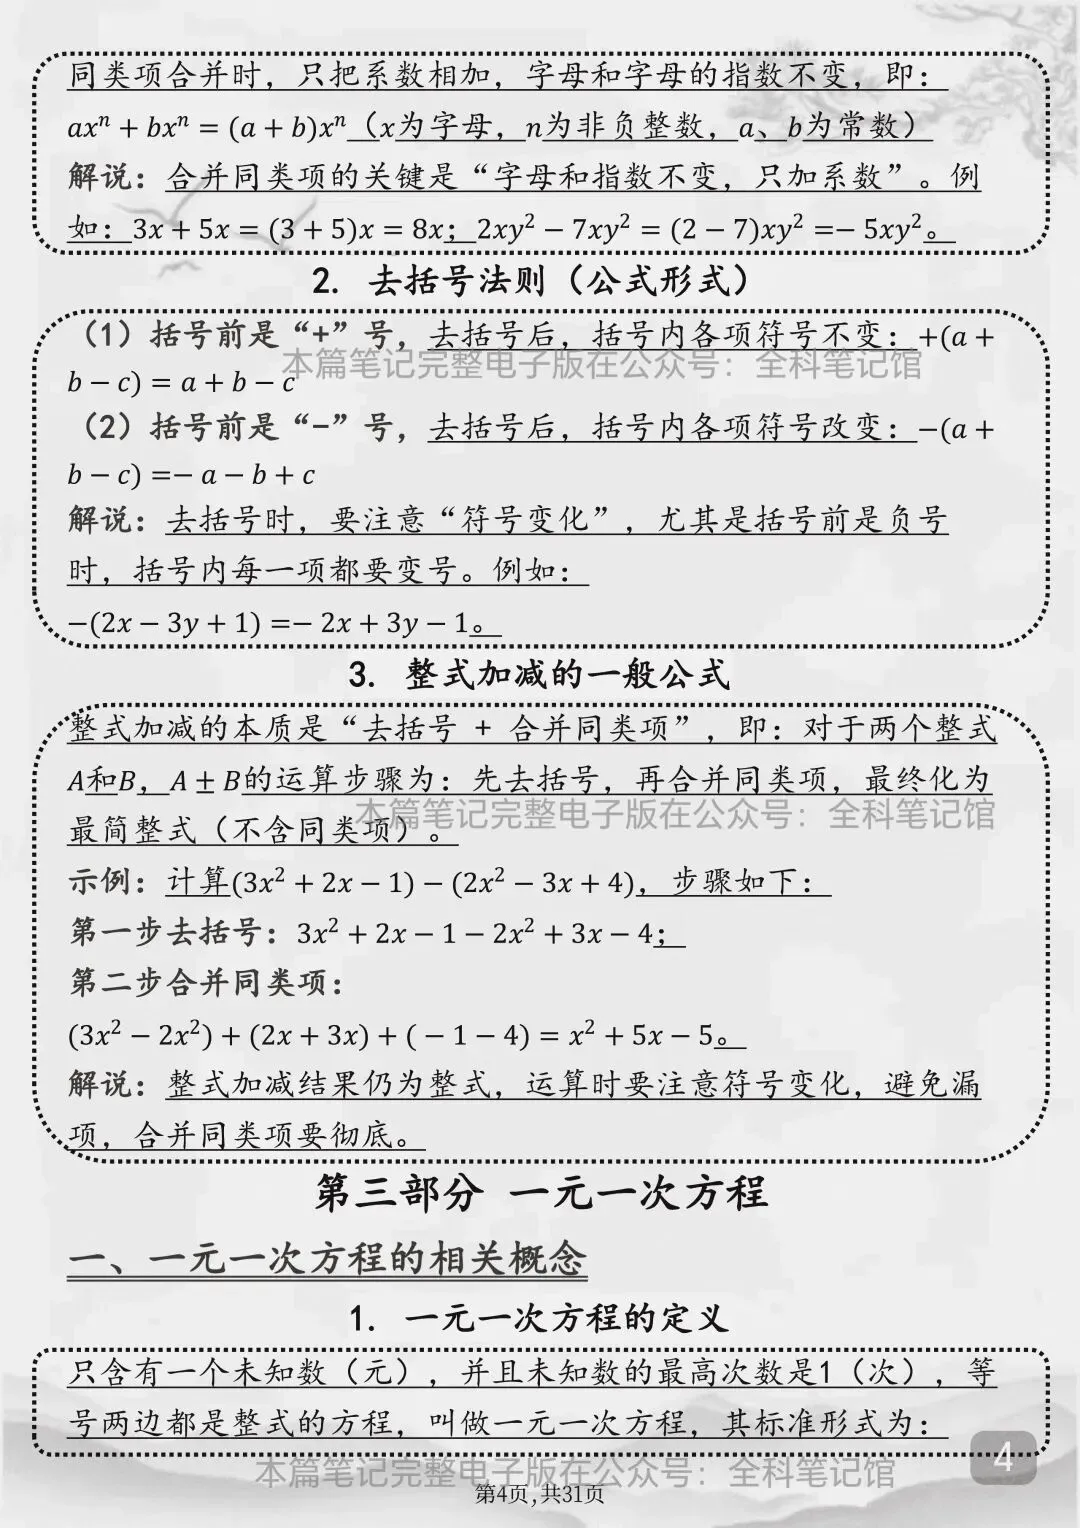 同类项合并时，只把系数相加，字母和字母的指数不变，即：
axⁿ + bxⁿ = (a + b)xⁿ（x为字母，n为非负整数，a、b为常数）
解说：合并同类项的关键是“字母和指数不变，只加系数”。例
如：3x + 5x = (3 + 5)x = 8x；2xy² − 7xy² = (2 − 7)xy² =− 5xy²。
2. 去括号法则（公式形式）
（1）括号前是“+”号，去括号后，括号内各项符号不变：+(a +
本篇笔记完整电子版在公众号：全科笔记馆
b − c) = a + b − c
（2）括号前是“−”号，去括号后，括号内各项符号改变：−(a +
b − c) =− a − b + c
解说：去括号时，要注意“符号变化”，尤其是括号前是负号
时，括号内每一项都要变号。例如：
−(2x − 3y + 1) =− 2x + 3y − 1。
3. 整式加减的一般公式
整式加减的本质是“去括号 + 合并同类项”，即：对于两个整式
A和B，A ± B的运算步骤为：先去括号，再合并同类项，最终化为
本篇笔记完整电子版在公众号：全科笔记馆
最简整式（不含同类项）。
示例：计算(3x² + 2x − 1) − (2x² − 3x + 4)，步骤如下：
第一步去括号：3x² + 2x − 1 − 2x² + 3x − 4；
第二步合并同类项：
(3x² − 2x²) + (2x + 3x) + ( − 1 − 4) = x² + 5x − 5。
解说：整式加减结果仍为整式，运算时要注意符号变化，避免漏
项，合并同类项要彻底。
第三部分 一元一次方程
一、一元一次方程的相关概念
1. 一元一次方程的定义
只含有一个未知数（元），并且未知数的最高次数是1（次），等
号两边都是整式的方程，叫做一元一次方程，其标准形式为：
4
本篇笔记完整电子版在公众号：全科笔记馆
第4页,共31页